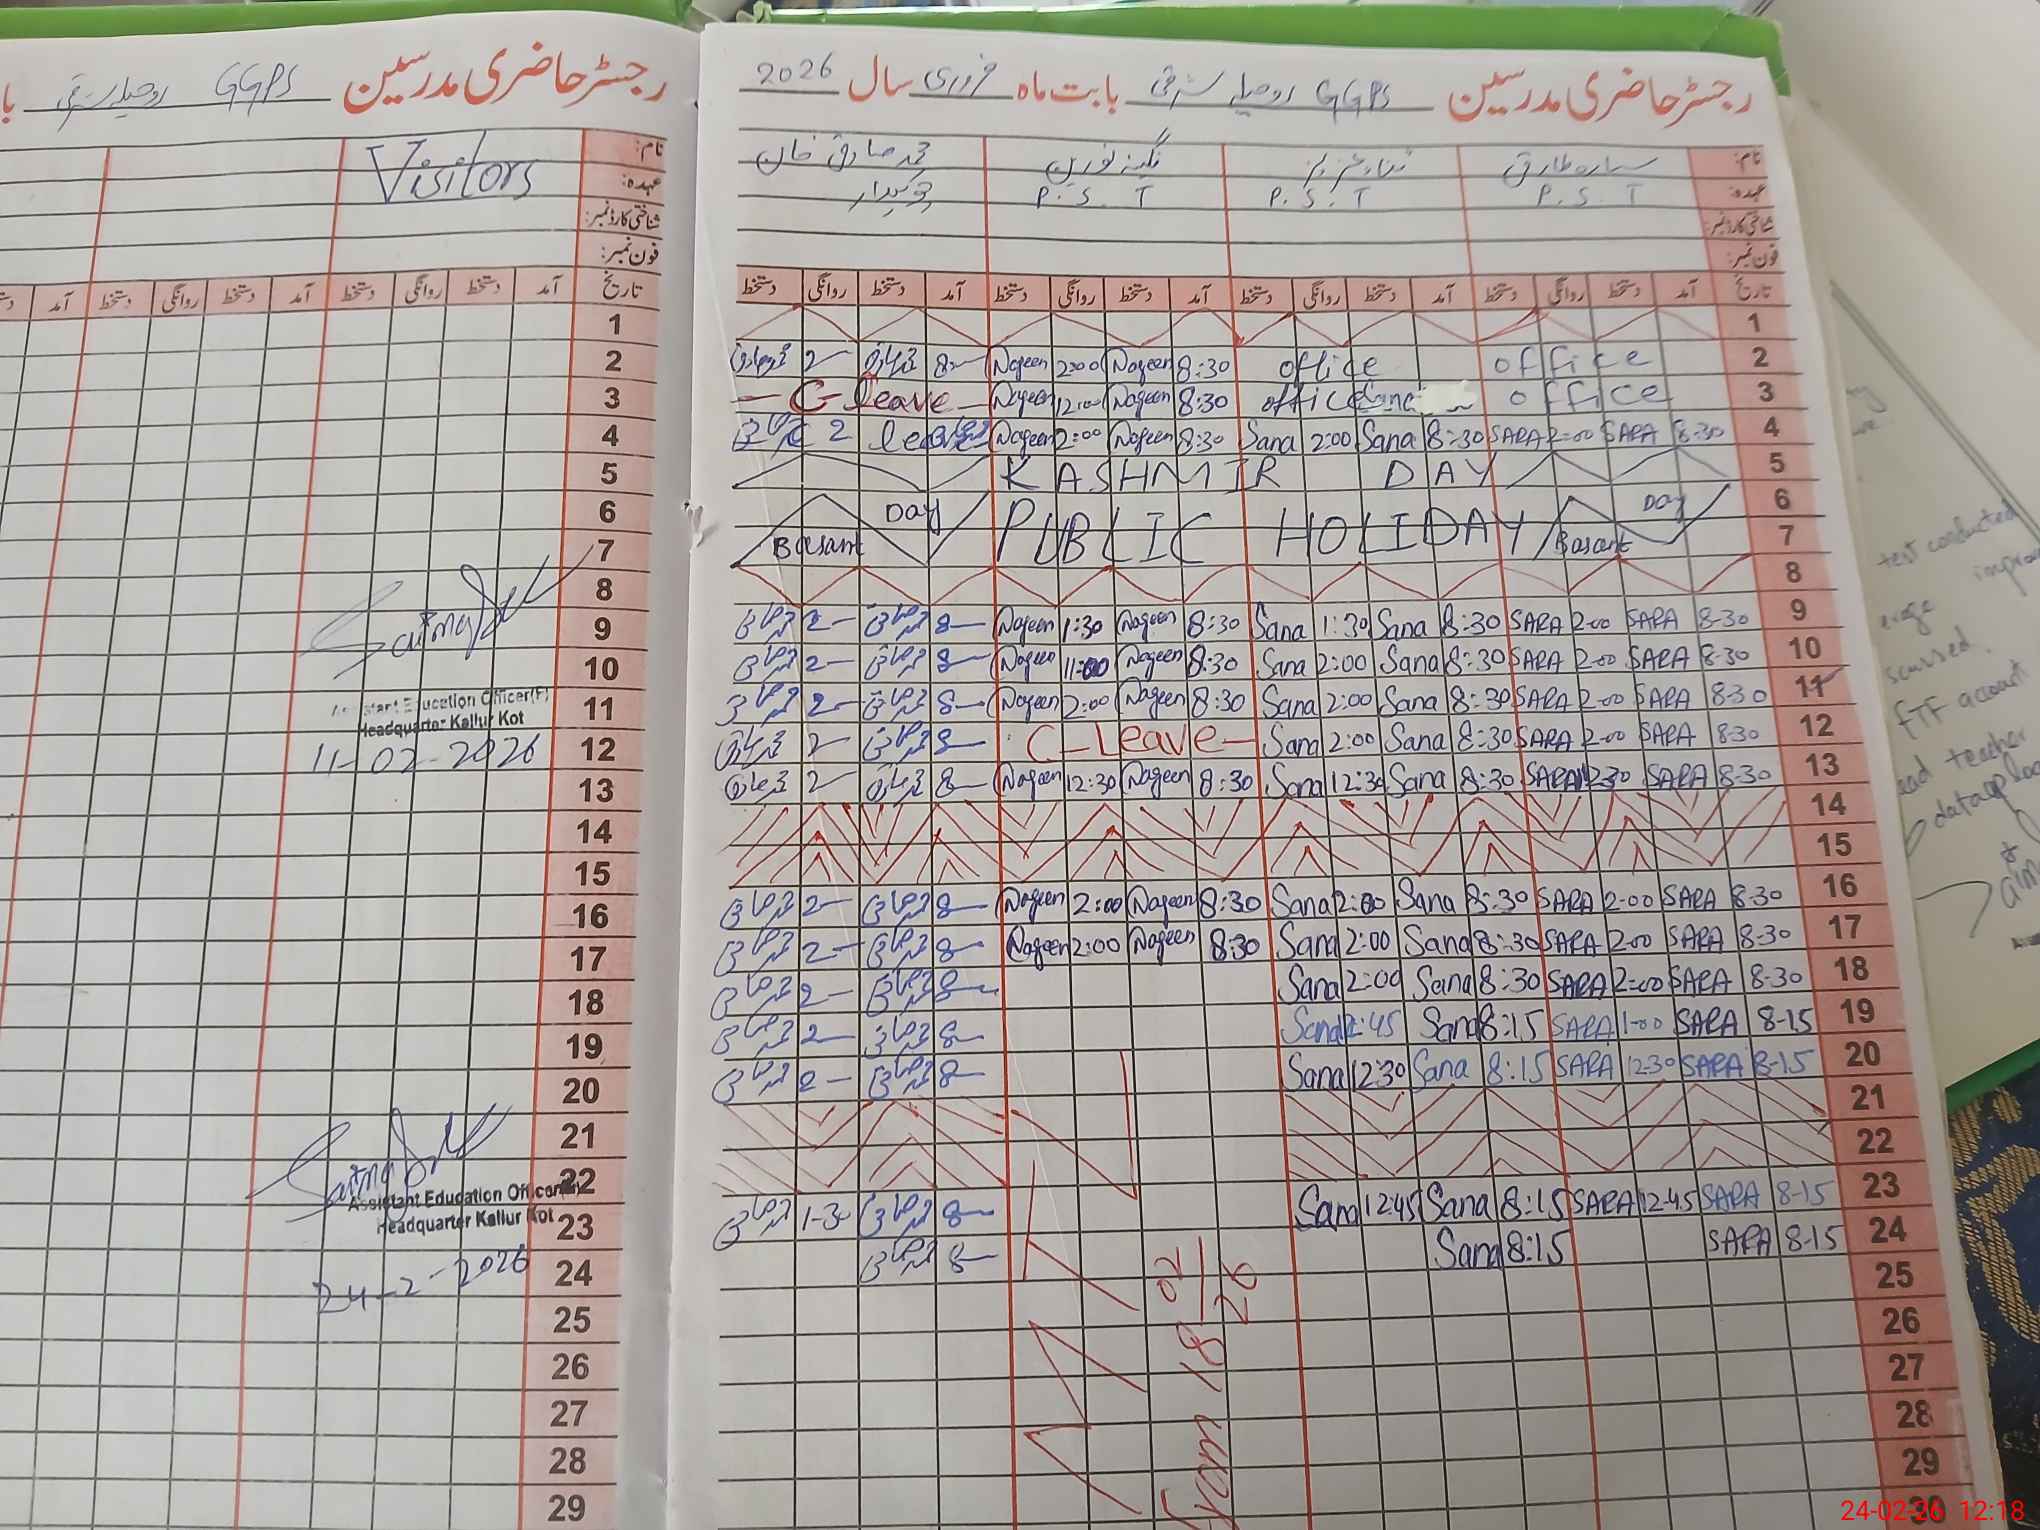 رجسٹر حاضری مدرسین GGPS روحیلہ شرقی با
نام:
Visitors
عہدہ:
شناختی کارڈ نمبر:
فون نمبر:
تاریخ آمد دستخط روانگی دستخط آمد دستخط روانگی دستخط آمد
1
2
3
4
5
6
7
8
9
10
Assistant Education Officer(F)
11
Headquarter Kallur Kot
12 11-02-2026
13
14
15
16
17
18
19
20
21
22
Assistant Education Officer
23 Headquarter Kallur Kot
24 24-2-2026
25
26
27
28
29
رجسٹر حاضری مدرسین GGPS روحیلہ شرقی بابت ماہ فروری سال 2026
نام: سارہ طارق نگینہ نورین محمد صادق خان
عہدہ: P.S.T P.S.T P.S.T چوکیدار
شناختی کارڈ نمبر:
فون نمبر:
تاریخ آمد دستخط روانگی دستخط آمد دستخط روانگی دستخط آمد دستخط روانگی دستخط آمد دستخط روانگی دستخط
1
2- 8- Nageen 2:00 Nageen 8:30 office office 2
C-leave Nageen 12:00 Nageen 8:30 office Sana office 3
2 leave Nageen 2:00 Nageen 8:30 Sana 2:00 Sana 8:30 SARA 2-00 SARA 8-30 4
KASHMIR DAY 5
Day PUBLIC HOLIDAY Day 6
Basant Basant 7
8
2- 8- Nageen 1:30 Nageen 8:30 Sana 1:30 Sana 8:30 SARA 2-00 SARA 8-30 9
2- 8- Nageen 11:00 Nageen 8:30 Sana 2:00 Sana 8:30 SARA 2-00 SARA 8-30 10
2- 8- Nageen 2:00 Nageen 8:30 Sana 2:00 Sana 8:30 SARA 2-00 SARA 8-30 11
2- 8- C-Leave- Sana 2:00 Sana 8:30 SARA 2-00 SARA 8-30 12
2- 8- Nageen 12:30 Nageen 8:30 Sana 12:30 Sana 8:30 SARA 12-30 SARA 8-30 13
14
15
2- 8- Nageen 2:00 Nageen 8:30 Sana 2:00 Sana 8:30 SARA 2-00 SARA 8-30 16
2- 8- Nageen 2:00 Nageen 8:30 Sana 2:00 Sana 8:30 SARA 2-00 SARA 8-30 17
2- 8- Sana 2:00 Sana 8:30 SARA 2-00 SARA 8-30 18
2- 8- Sana :45 Sana 8:15 SARA 1-00 SARA 8-15 19
2- 8- Sana 12:30 Sana 8:15 SARA 12-30 SARA 8-15 20
21
22
1-3- 8- Sana 12:45 Sana 8:15 SARA 12-45 SARA 8-15 23
8- Sana 8:15 SARA 8-15 24
25
26
27
28
29
30
From 18/02/26
test conducted
scussed.
FTF account
ead teacher
24-02-26 12:18